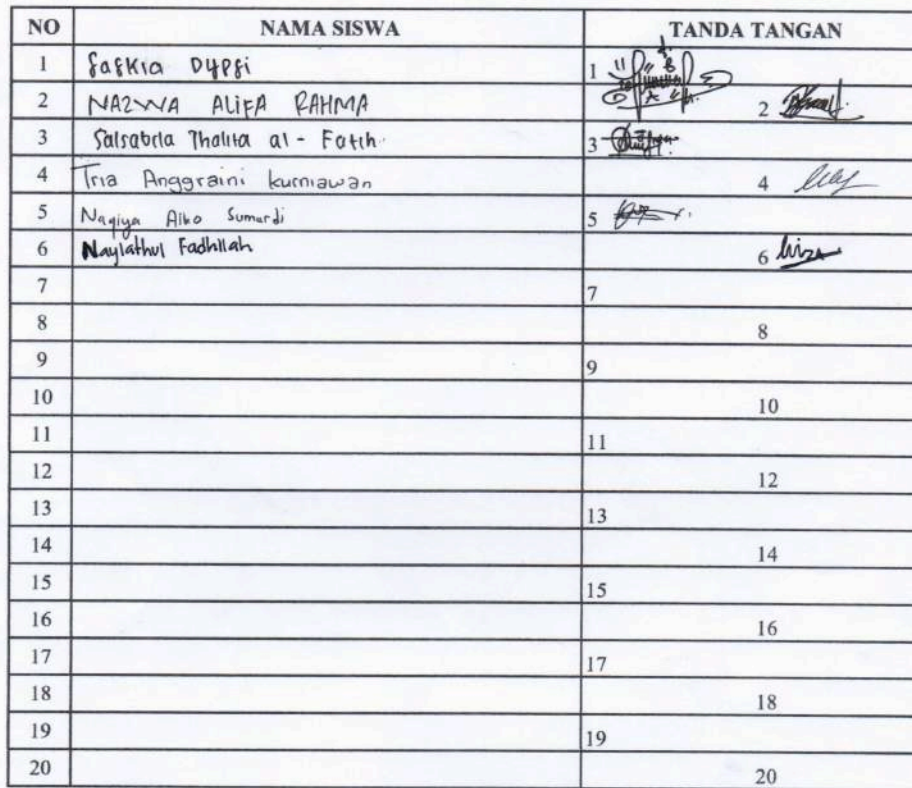 NO NAMA SISWA TANDA TANGAN
1 Saskia Dypsi 1
2 NAZWA ALIFA RAHMA 2
3 Salsabila Thalita al - Fatih 3
4 Tria Anggraini kurniawan 4
5 Naqiya Aiko Sumardi 5
6 Naylathul Fadhilah 6
7 7
8 8
9 9
10 10
11 11
12 12
13 13
14 14
15 15
16 16
17 17
18 18
19 19
20 20